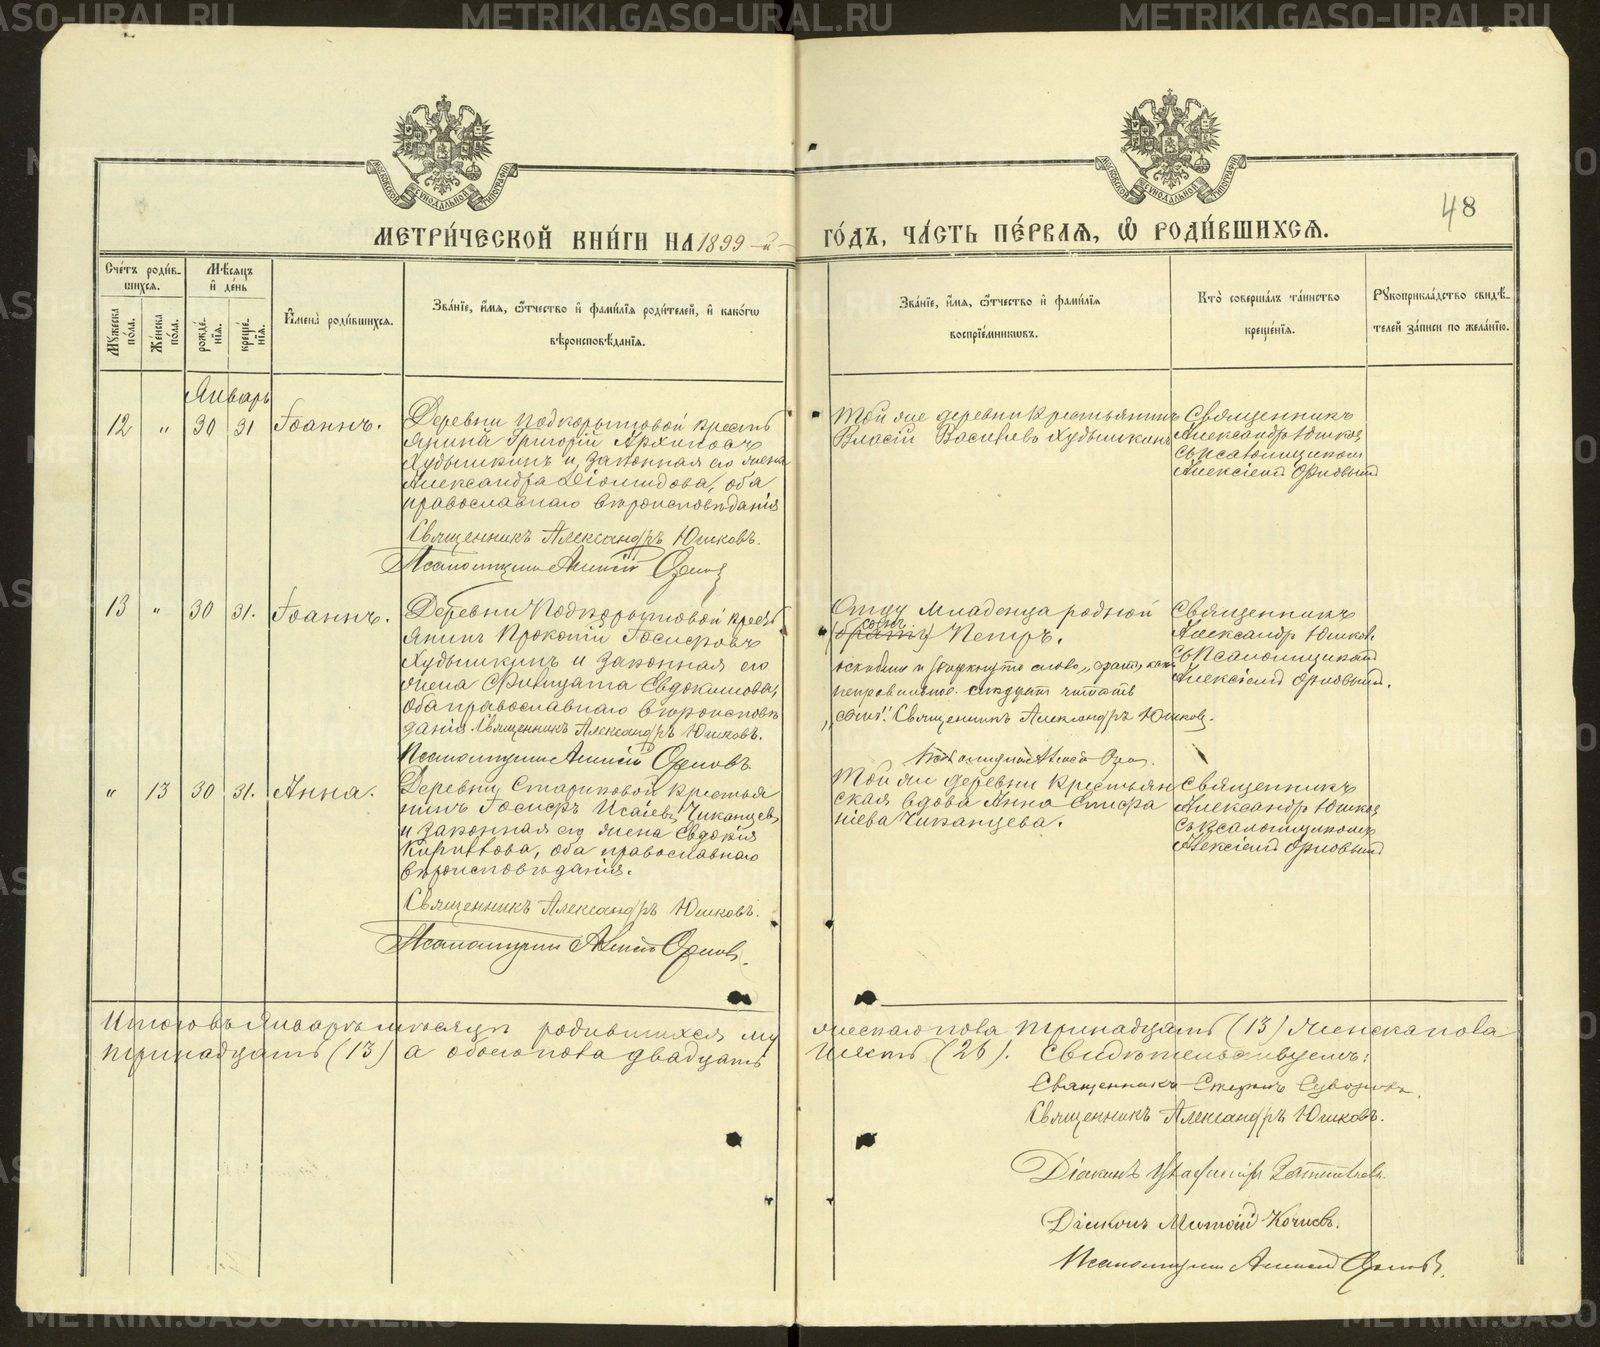 METRIKI.GASO-URAL.RU
48
МЕТРИ́ЧЕСКОЙ КНИ́ГИ НА 1899-й
ГО́ДЪ, ЧА́СТЬ ПЕ́РВАЯ, Ѿ РОДИ́ВШИХСЯ.
Сче́тъ роди́в-
шихся.
Мꙋжеска по́ла.
Же́нска по́ла.
Мѣсяцъ и де́нь
рожде́-
нїя.
креще́-
нїя.
Имена̀ роди́вшихся.
Зва́нїе, и́мя, ѻ́тчество и фами́лїя роди́телей, и како́гѡ
вѣроисповѣ́данїя.
Зва́нїе, и́мя, ѻ́тчество и фами́лїя
воспрїе́мникѡвъ.
Кто̀ соверша́лъ та́инство
креще́нїя.
Рꙋкоприкла́дство свидѣ́-
телей за́писи по жела́нїю.
Январь
12 " 30 31 Іоаннъ.
Деревни Подкорытовой кресть
янинъ Григорій Архиповъ
Худышкинъ и законная его жена
Александра Діомидова, оба
православнаго вѣроисповѣданія
Священникъ Александръ Юшковъ.
Псаломщикъ Алексій Орловъ
Той же деревни крестьянинъ
Власій Васильевъ Худышкинъ
Священникъ
Александръ Юшковъ
съ псаломщикомъ
Алексіемъ Орловымъ
13 " 30 31. Іоаннъ.
Деревни Подкорытовой кресть
янинъ Прокопій Іосифовъ
Худышкинъ и законная его
жена Евдокимова,
оба православнаго вѣроисповѣ
данія. Священникъ Александръ Юшковъ.
Псаломщикъ Алексій Орловъ
Отцу младенца родной
сынъ
(братъ) Петръ.
слово „братъ" как
неправильное. следуетъ читать
„сынъ". Священникъ Александръ Юшковъ.
Псаломщикъ Алексій
Священникъ
Александръ Юшковъ.
съ Псаломщикомъ
Алексіемъ Орловымъ.
" 13 30 31. Анна.
Деревни Стариковой кресть
янинъ Іосифъ Исаіевъ Чиканцевъ
и законная его жена Евдокія
Кириллова, оба православнаго
вѣроисповѣданія.
Священникъ Александръ Юшковъ.
Псаломщикъ Алексій Орловъ.
Той же деревни крестьян
ская вдова Анна Стефа
ніева Чиканцева.
Священникъ
Александръ Юшковъ
съ псаломщикомъ
Алексіемъ Орловымъ
Итого въ Январѣ мѣсяцѣ родившихся му
жескаго пола тринадцать (13) женска пола
тринадцать (13) а обоего пола двадцать
шесть (26). Свидѣтельствуемъ:
Священникъ Стефанъ
Священникъ Александръ Юшковъ.
Діаконъ
Діаконъ
Псаломщикъ Алексій Орловъ.